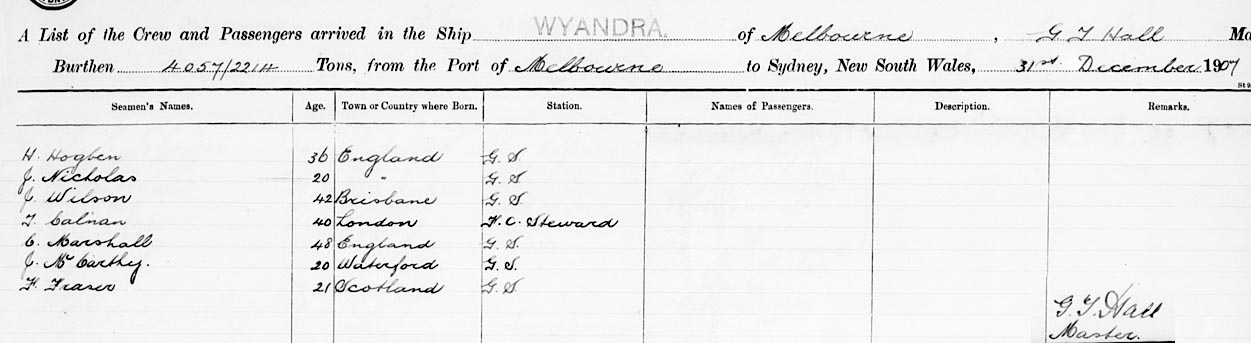 A List of the Crew and Passengers arrived in the Ship WYANDRA. of Melbourne, G T Hall Ma
Burthen 4057/2214 Tons, from the Port of Melbourne to Sydney, New South Wales, 31st December 1907
Seamen's Names. Age. Town or Country where Born. Station. Names of Passengers. Description. Remarks.
H. Hogben 36 England G. S.
J. Nicholas 20 " G. S.
J. Wilson 42 Brisbane G. S.
T. Calnan 40 London F. C. Steward
C. Marshall 48 England G. S.
J. McCarthy. 20 Waterford G. S.
F. Fraser 21 Scotland G. S.
G. T. Hall
Master.